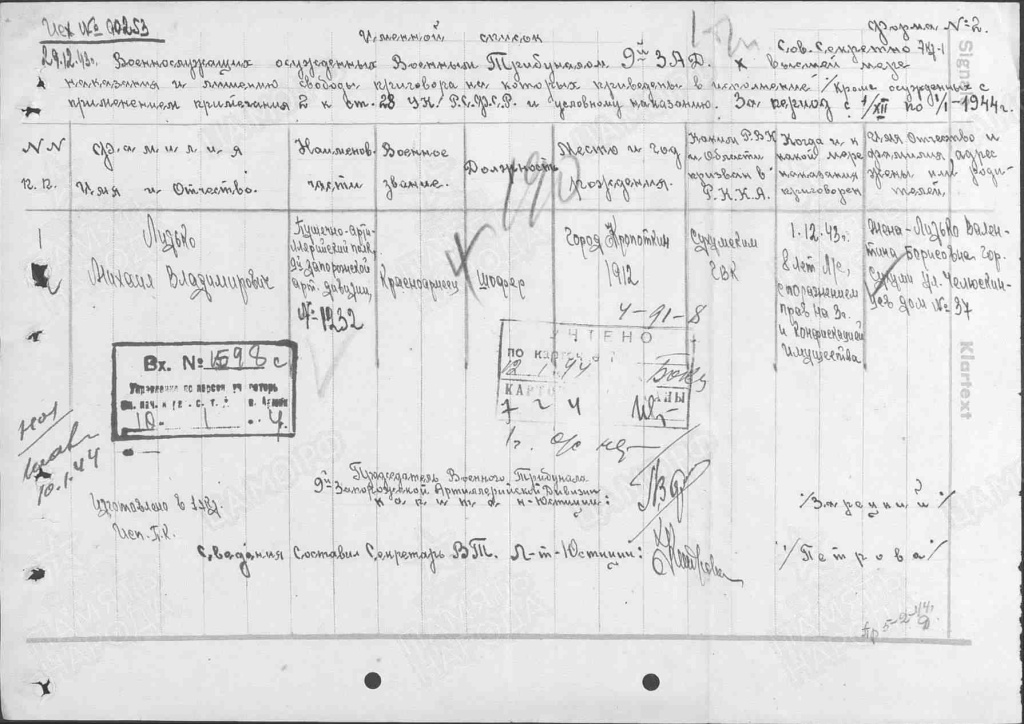 Исх № 00253
Форма № 2.
Именной список
Сов. Секретно
29.12.43г. Военнослужащих осужденных Военным Трибуналом 9й ЗАД. к высшей мере
наказания и лишению свободы приговора на которых приведены в исполнение /Кроме осужденных с
применением примечания 2 к ст. 28 У.К. Р.С.Ф.С.Р. и условному наказанию. За период с 1/XII по 1/I-1944г.
N N п.п.
Фамилия Имя и Отчество.
Наименов. части
Военное звание.
Должность
Место и год рождения.
Каким Р.В.К и Области призван в Р.К.К.А.
Когда и к какой мере наказания приговорен
Имя Отчество и фамилия, адрес жены или родителей
190
1
Лизько
Михаил Владимирович
Пушечно-артиллерийский полк,
9й Запорожской
арт. дивизии,
№-1232
Красноармеец
Шофер
Город Кропоткин
1912
Сухумским
ГВК
1.12.43г.
8 лет л/с,
с поражением
прав на 3г.
и конфискацией
имущества
Жена-Лизько Вален-
тина Борисовна Гор.
Сухуми ул. Челюскин-
цев дом № 37
4-91-8
УЧТЕНО
по картот
12 1.44
КАРТО
7 2 4
Вх. № 598с
Управление по персон. учету потерь
10 - 1 - 4
10.1.44
Председатель Военного Трибунала
9й Запорожской Артиллерийской Дивизии
капитан-Юстиции:
/Зарецкий/
Изготовлено в 1 экз.
Исп. П.К.
Сведения Составил Секретарь ВТ. Л-т-Юстиции:
/Петрова/
Signal
Klartext